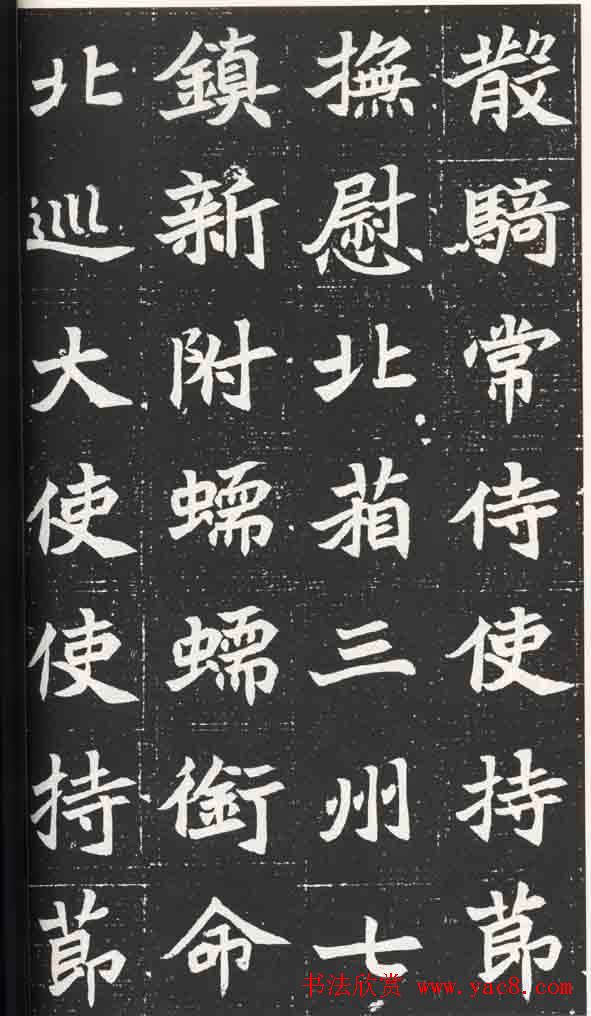 散騎常侍使持莭
撫慰北葙三州七
鎮新附蠕蠕銜命
北巡大使使持莭
书法欣赏 www.yac8.com